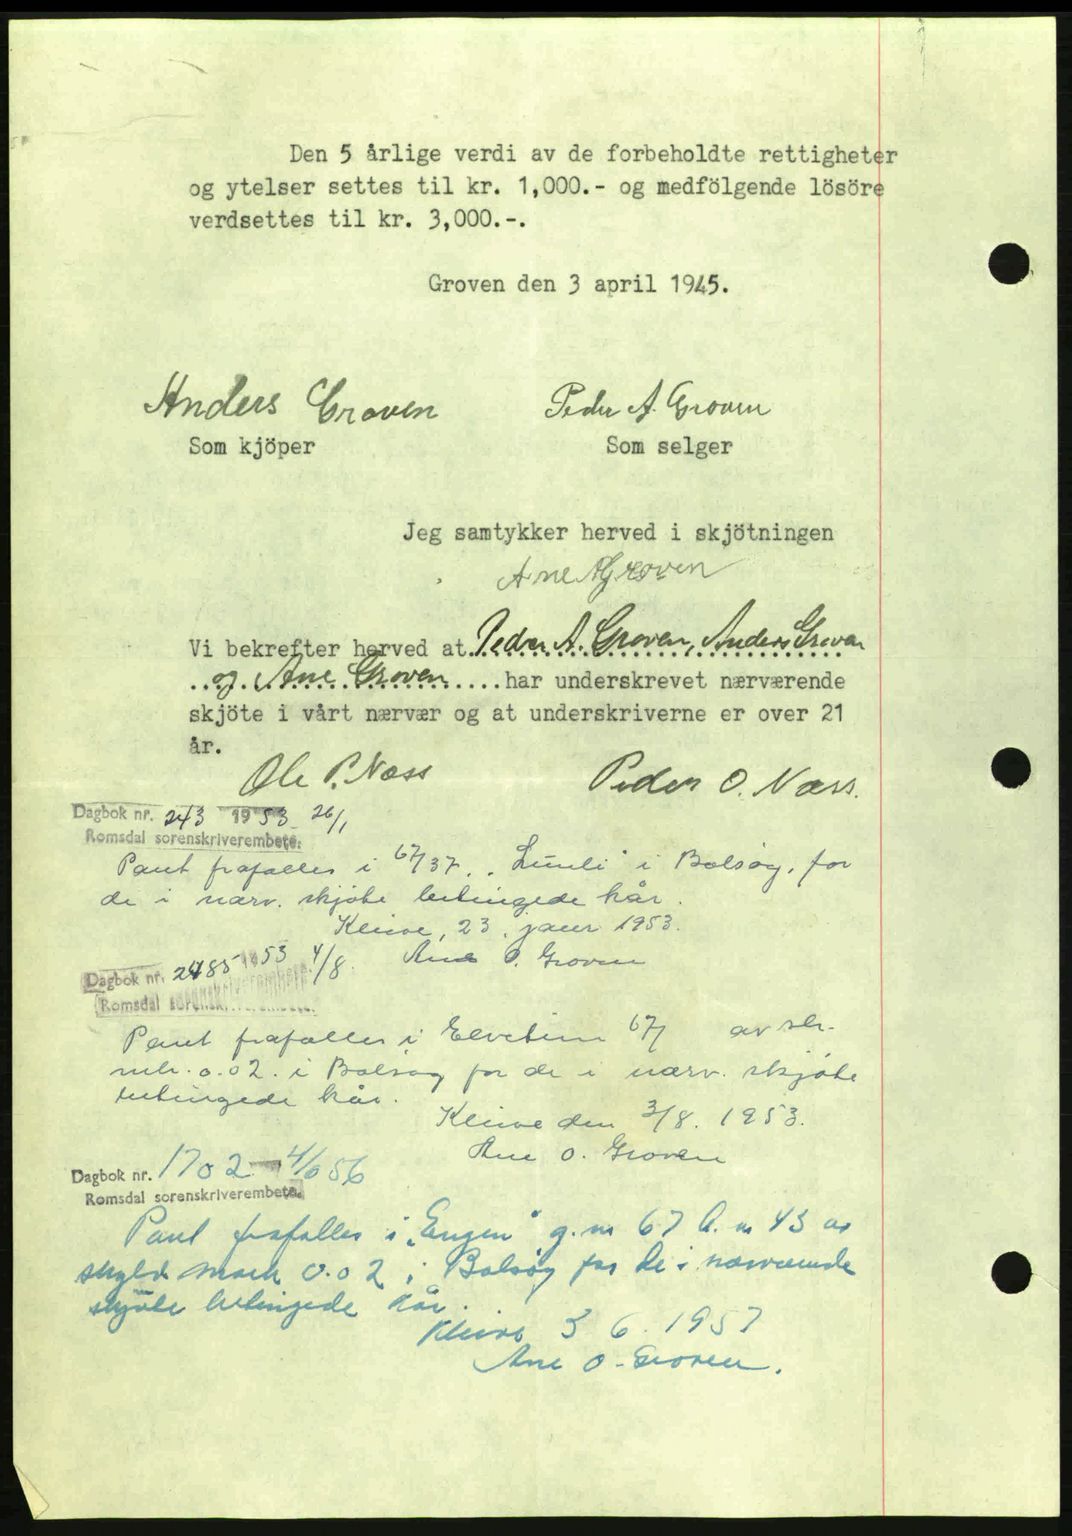 Den 5 årlige verdi av de forbeholdte rettigheter
og ytelser settes til kr. 1,000.- og medfölgende lösöre
verdsettes til kr. 3,000.-.
Groven den 3 april 1945.
Anders Groven Peder A. Groven
Som kjöper Som selger
Jeg samtykker herved i skjötningen
Ane A Groven
Vi bekrefter herved at Peder A. Groven, Anders Groven
og Ane Groven har underskrevet nærværende
skjöte i vårt nærvær og at underskriverne er over 21
år.
Ole P. Næss Peder O. Næss.
Dagbok nr. 243 1953 26/1
Romsdal sorenskriverembete.
Pant frafalles i 67/37 " i Bolsøy, for
de i nærv. skjøte betingede kår.
Kleive, 23. januar 1953.
Ane O. Groven
Dagbok nr. 2485 1953 4/8.
Romsdal sorenskriverembete.
Pant frafalles i 67/ av skr.
mk. 0.02. i Bolsøy for de i nærv. skjøte
betingede kår.
Kleive den 3/8. 1953.
Ane O. Groven
Dagbok nr. 1702 4/6 56
Romsdal sorenskriverembete.
Pant frafalles i "Engen" g.nr 67 b.nr 43 av
skyld mark 0.02 i Bolsøy for de i nærværende
skjöte betingede kår.
Kleive 3 6. 1957
Ane O. Groven.